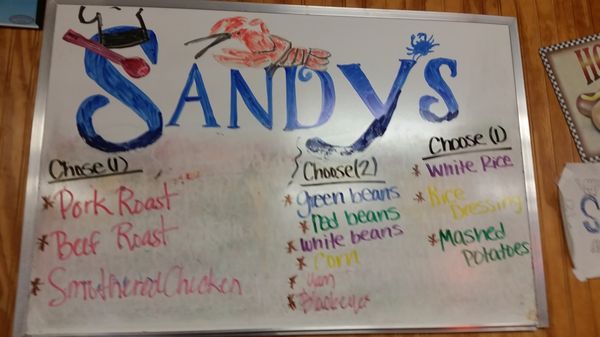 SANDY'S
Choose (1)
* Pork Roast
* Beef Roast
* Smothered Chicken
Choose (2)
* green beans
* Red beans
* White beans
* Corn
* Yam
* Blackeyes
Choose (1)
* White Rice
* Rice
Dressing
* Mashed
Potatoes
HO
S